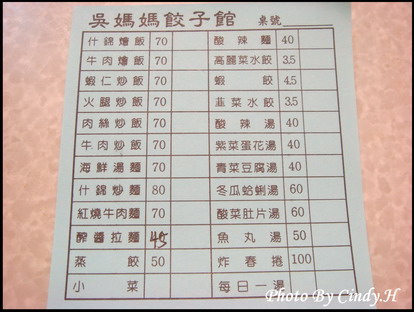 吳媽媽餃子館 桌號
什錦燴飯 70 酸辣麵 40
牛肉燴飯 70 高麗菜水餃 3.5
蝦仁炒飯 70 蝦餃 4.5
火腿炒飯 70 韭菜水餃 3.5
肉絲炒飯 70 酸辣湯 40
牛肉炒飯 70 紫菜蛋花湯 40
海鮮湯麵 70 青菜豆腐湯 40
什錦炒麵 80 冬瓜蛤蜊湯 60
紅燒牛肉麵 70 酸菜肚片湯 60
醡醬拉麵 45 魚丸湯 50
蒸餃 50 炸春捲 100
小菜 每日一湯
Photo By Cindy.H